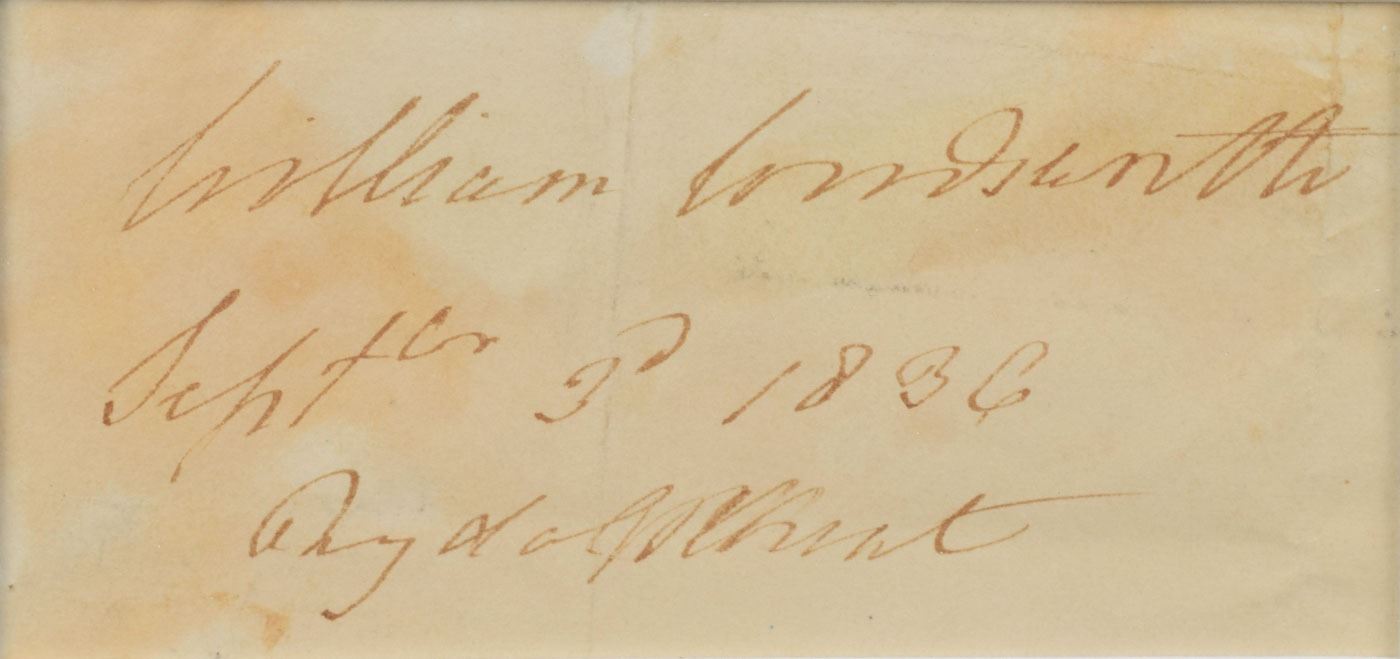 William Wordsworth
Septbr 3d 1836
Rydal Mount